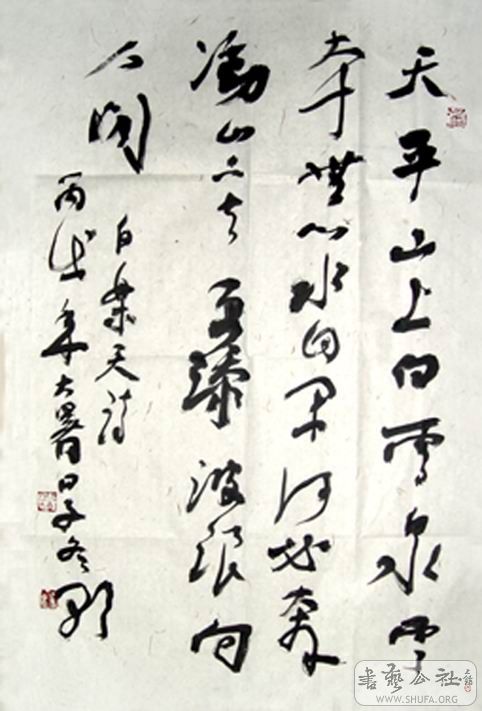 天平山上白雲泉雲
本無心水自閑何必奔
衝山下去更添波浪向
人間
白樂天詩
丙戌年大暑日子冬
書藝公社
WWW.SHUFA.ORG